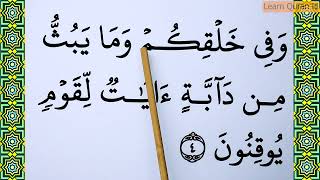 Learn Quran id
وَفِى خَلْقِكُمْ وَمَا يَبُثُّ
مِن دَآبَّةٍ ءَايَـٰتٌ لِّقَوْمٍ
يُوقِنُونَ ٤